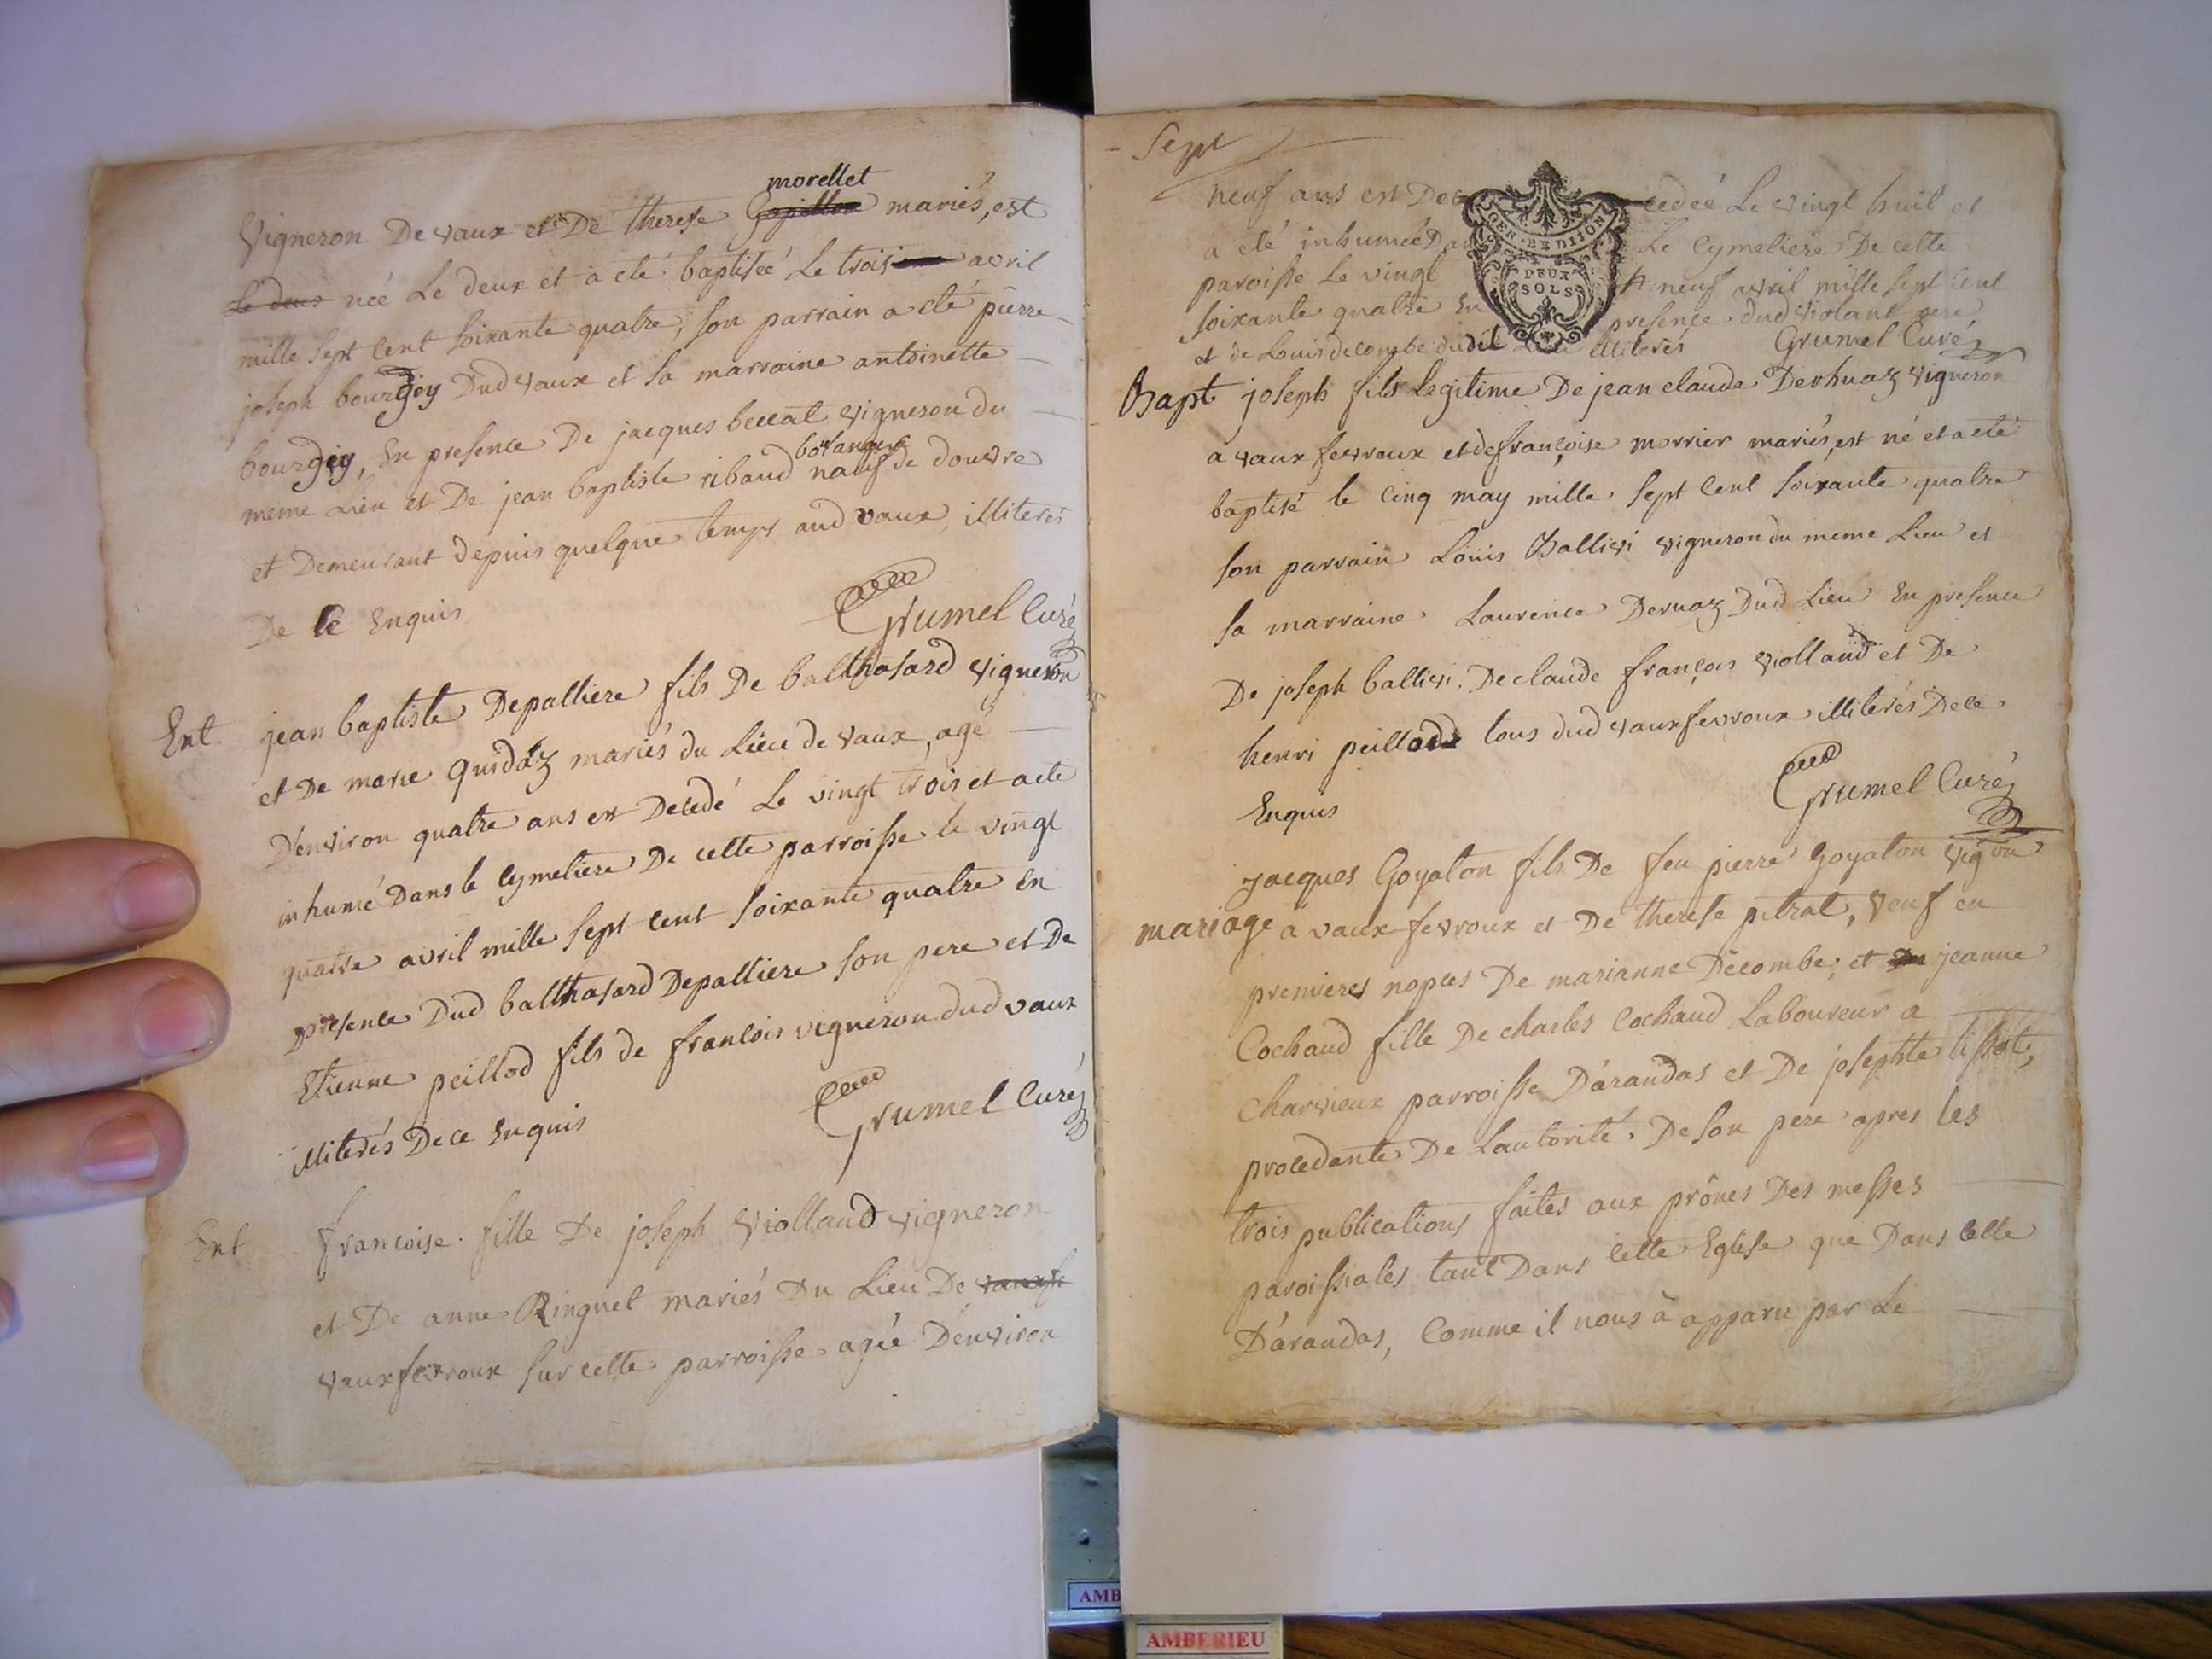 morellet
Vigneron De vaux et De therese Gopillon mariés, est
Le deux née Le deux et a eté baptisée Le trois avril
mille sept cent soixante quatre, son parrain a eté pierre
joseph bourgey Dud vaux et sa marraine antoinette
bourgey, En presence De jacques beccat vigneron du
boulanger
meme Lieu et De jean baptiste ribaud natif de douvre
et Demeurant depuis quelque temps aud vaux, illiterés
De ce Enquis
Grumel Curé
Ent jean baptiste Depalliere fils De balthasard vigneron
et De marie quidaz mariés du Lieu de vaux, agé
D'environ quatre ans est Decedé Le vingt trois et a eté
inhumé Dans le Cymetiere De cette parroisse le vingt
quatre avril mille sept cent soixante quatre En
presence Dud balthasard Depalliere son pere et De
Etienne peillod fils de francois vigneron dud vaux
illiterés De ce Enquis
Grumel Curé
Ent francoise fille De joseph Viollaud vigneron
et De anne Ringuet mariés Du Lieu De
vauxfevroux sur cette parroisse agée D'environ
Sept
neuf ans est Decedeé Le vingt huit et
a eté inhumée Dans Le Cymetiere De cette
paroisse Le vingt neuf avril mille sept cent
soixante quatre En presence dud Violaud pere
et de Louis decombe dudit Lieu illiterés Grumel Curé
GEN. DE DIJON
DEUX
SOLS
Bapt. joseph fils legitime De jean claude Dervuaz vigneron
a vaux fevroux et de françoise morrier mariés, est né et a eté
baptisé le cinq may mille sept cent soixante quatre
son parrain Loüis Ballivi vigneron du meme Lieu et
sa marraine Laurence Dervaz Dud Lieu En presence
De joseph ballivi, De claude françois Viollaud et De
henri peillod tous dud vauxfevroux illiterés De ce
Enquis
Grumel Curé
jacques Goyaton fils De feu pierre Goyaton vigon
mariage a vaux fevroux et De therese pitrat, Veuf en
premieres nopces De marianne Decombe, et jeanne
Cochaud fille De charles Cochaud Laboureur a
Charvieux parroisse D'arandas et De josephte lissot,
procedante De Lautorité De son pere apres les
trois publications faites aux prônes Des messes
paroissiales tant Dans cette Eglise que Dans celle
D'arandas, Comme il nous a apparu par Le
AMB
AMBERIEU